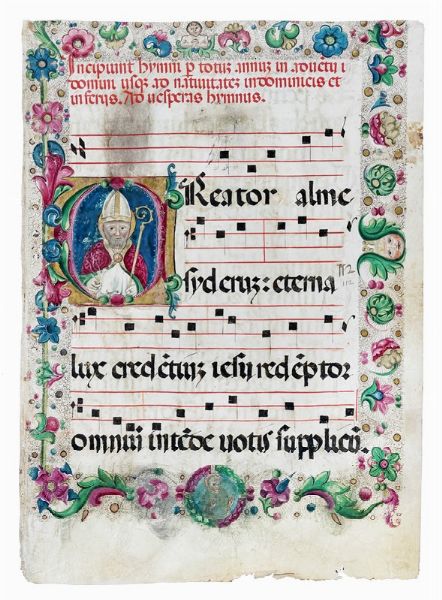 Incipiunt hymni p totuz annuz in aduetu
domini usqz ad natiuitatez in dominicis et
in ferijs. Ad uesperas hymnus.
CReator alme
syderuz: eterna
112
112
lux credētiuz iesu redēptor
omniū intēde uotis supplicū.